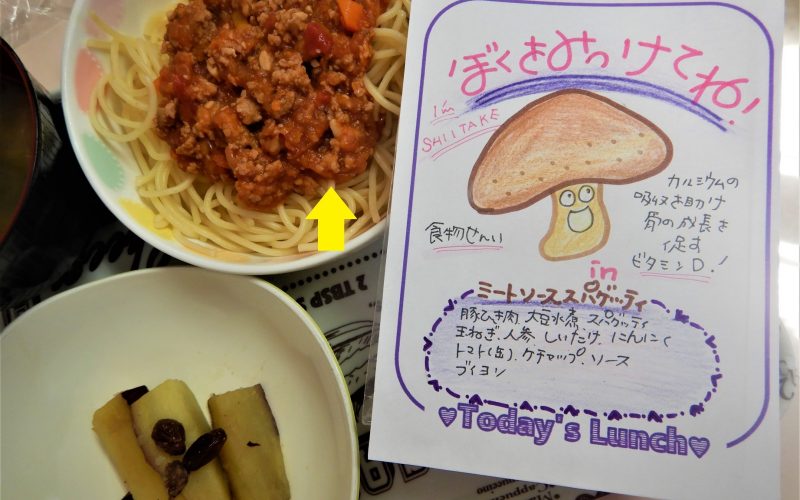 ぼくをみつけてね!
I'm
SHIITAKE
カルシウムの
吸収を助け
骨の成長を
促す
ビタミンD.!
食物せんい
in
ミートソーススパゲッティ
豚ひき肉 大豆水煮 スパゲッティ
玉ねぎ、人参、しいたけ、にんにく
トマト(缶)、ケチャップ、ソース
ブイヨン
♥Today's Lunch♥
2 TBSP